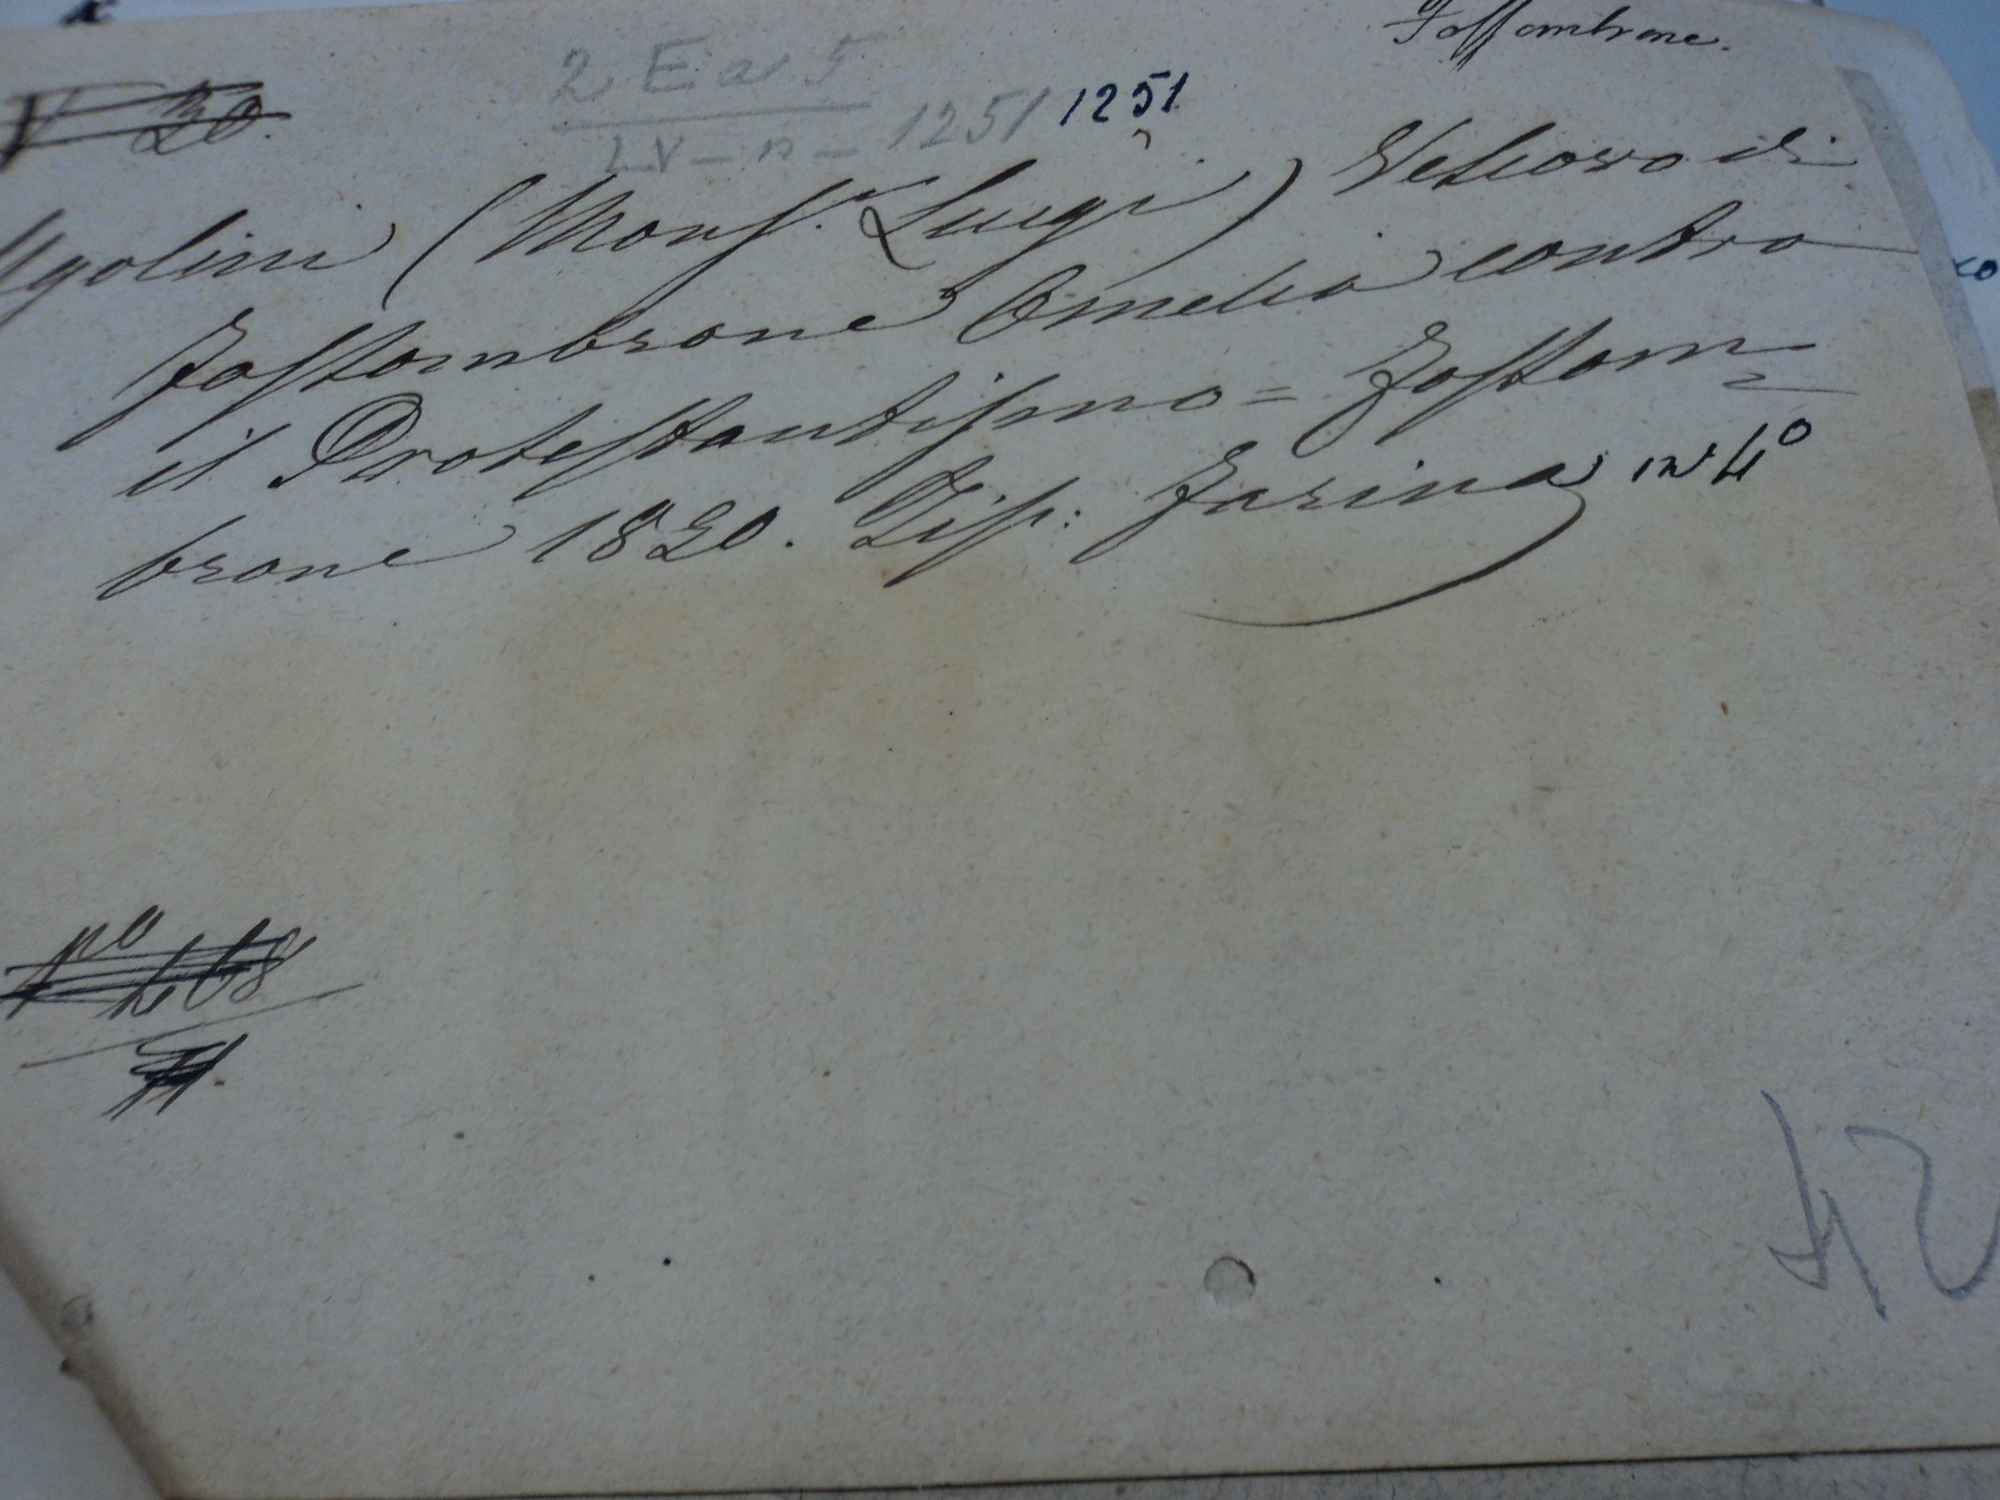 Fossombrone.
20.
2 E a 5
LV - n - 1251 1251
Ugolini (Mons.r Luigi) Vescovo di
Fossombrone Omelia contro
il Protestantismo = Fossom=
brone 1820. Tip: Farina in 4°
N° 268
42